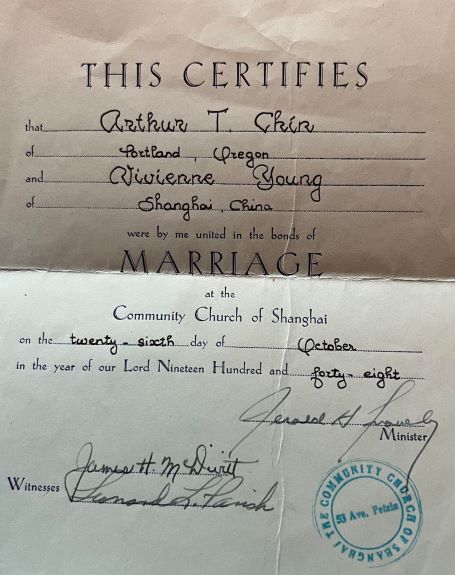 THIS CERTIFIES
that Arthur T. Chin
of Portland, Oregon
and Vivienne Young
of Shanghai, China
were by me united in the bonds of
MARRIAGE
at the
Community Church of Shanghai
on the twenty-sixth day of October
in the year of our Lord Nineteen Hundred and forty-eight
Jerald H
Minister
James H. McDivitt
Witnesses Leonard L. Parish
THE COMMUNITY CHURCH OF SHANGHAI
53 Ave. Petain